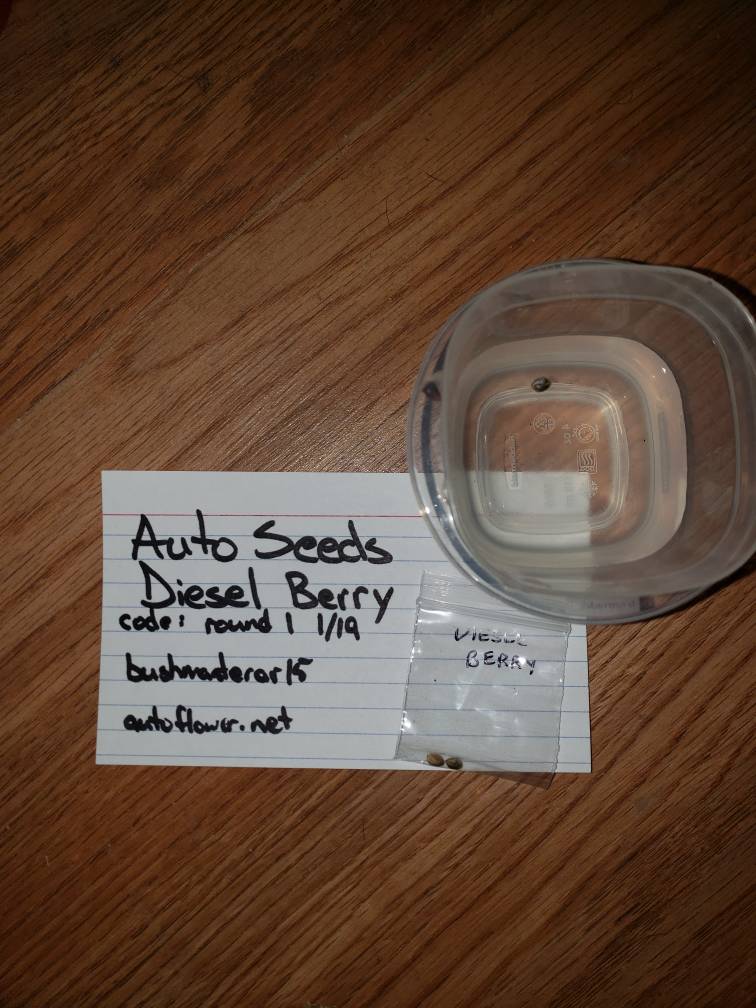 Auto Seeds
Diesel Berry
code: round 1 1/19
bushmasterar15
autoflower.net
DIESEL
BERRY